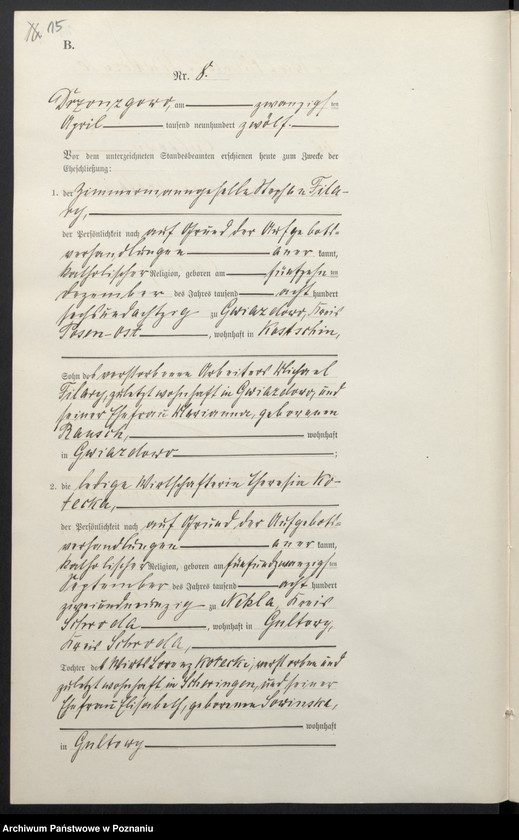 115
B.
Nr. 8.
am zwanzigsten
April tausend neunhundert zwölf.
Vor dem unterzeichneten Standesbeamten erschienen heute zum Zwecke der
Eheschließung:
1. der Zimmermanngeselle Stephan Fila-
ry,
der Persönlichkeit nach auf Grund der Aufgebots-
verhandlungen aner kannt,
katholischer Religion, geboren am fünfzehnten
Dezember des Jahres tausend acht hundert
sechsundachtzig zu Gwiazdowo, Kreis
Posen-Ost, wohnhaft in Kostschin,
Sohn des verstorbenen Arbeiters Michael
Filary, zuletzt wohnhaft in Gwiazdowo, und
seiner Ehefrau Marianna, geborenen
wohnhaft
in Gwiazdowo;
2. die ledige Wirtschafterin Theresia Ko-
tecka,
der Persönlichkeit nach auf Grund der Aufgebots-
verhandlungen aner kannt,
katholischer Religion, geboren am fünfundzwanzigsten
September des Jahres tausend acht hundert
zweiundneunzig zu Nekla, Kreis
Schroda, wohnhaft in Gultowy,
Kreis Schroda,
Tochter des Wirts Lorenz Kotecki, verstorben und
zuletzt wohnhaft in und seiner
Ehefrau Elisabeth, geborenen
wohnhaft
in Gultowy
Archiwum Państwowe w Poznaniu